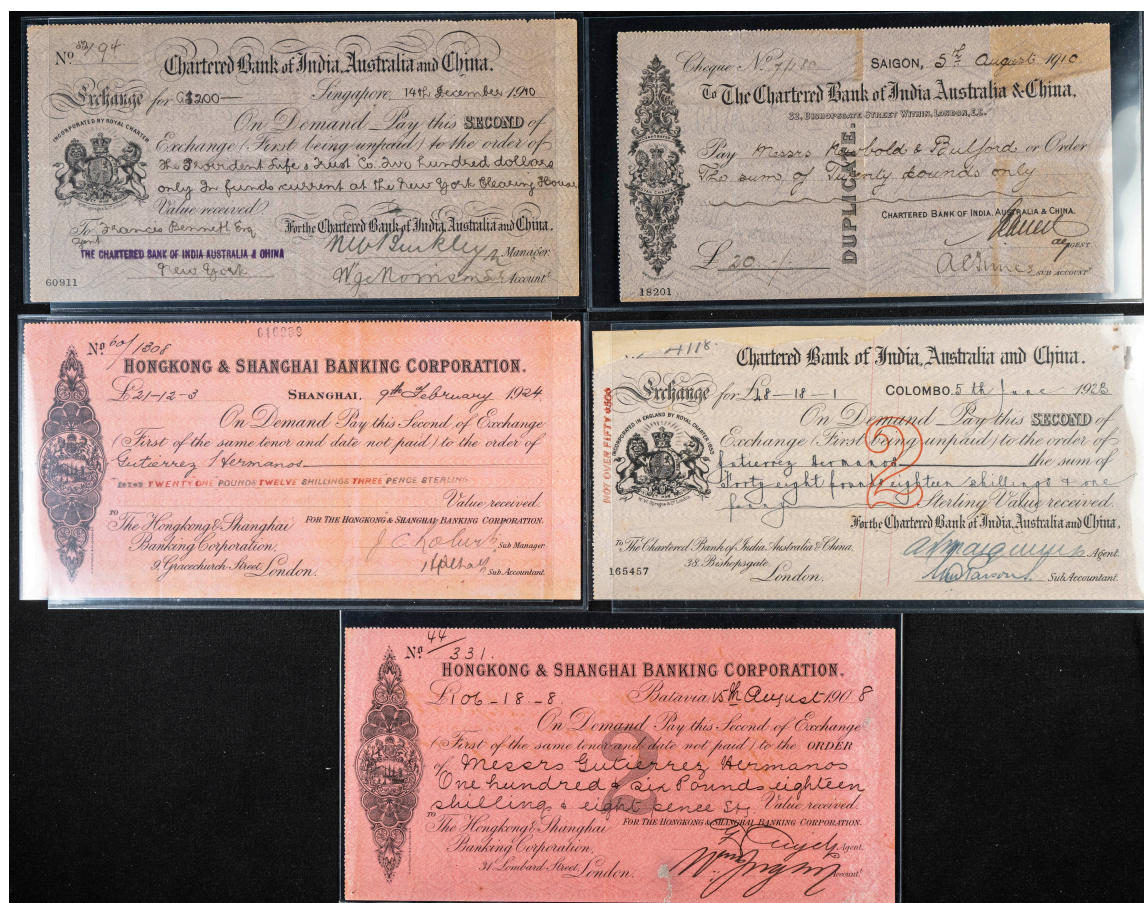 No 94
Chartered Bank of India, Australia and China.
Exchange for G$200— Singapore, 14th December 1910
INCORPORATED BY ROYAL CHARTER
On Demand Pay this SECOND of
Exchange (First being unpaid) to the order of
the Provident Life & Trust Co. Two hundred dollars
only In funds current at the New York Clearing House
Value received.
To Frances Bennett Esq For the Chartered Bank of India, Australia and China.
Agent Manager
THE CHARTERED BANK OF INDIA AUSTRALIA & CHINA
New York Sub Accountt
60911
Cheque No SAIGON, 5th August 1910
To The Chartered Bank of India Australia & China,
32, BISHOPSGATE STREET WITHIN, LONDON, E.C.
Pay Messrs Newbold & Bulford or Order
The sum of Twenty pounds only
DUPLICATE.
CHARTERED BANK OF INDIA, AUSTRALIA & CHINA.
AGENT.
£ 20 -/-
SUB ACCOUNTt
18201
No 60/1308
HONGKONG & SHANGHAI BANKING CORPORATION.
£21-12-3 SHANGHAI, 9th February 1924
On Demand Pay this Second of Exchange
(First of the same tenor and date not paid) to the order of
Gutierrez Hermanos
TWENTY ONE POUNDS TWELVE SHILLINGS THREE PENCE STERLING
Value received.
TO
The Hongkong & Shanghai FOR THE HONGKONG & SHANGHAI BANKING CORPORATION.
Banking Corporation, Sub Manager
9, Gracechurch Street, London. Sub Accountant.
4118
Chartered Bank of India, Australia and China.
Exchange for £48-18-1 COLOMBO. 5th June 1923
NOT OVER FIFTY £50£
INCORPORATED IN ENGLAND BY ROYAL CHARTER 1853
On Demand Pay this SECOND of
Exchange (First being unpaid) to the order of
Gutierrez Hermanos the sum of
2
Forty eight pounds eighteen shillings & one
penny Sterling Value received.
For the Chartered Bank of India, Australia and China,
To The Chartered Bank of India Australia & China. Agent.
38, Bishopsgate
London. Sub Accountant.
165457
No 44/331.
HONGKONG & SHANGHAI BANKING CORPORATION.
£106-18-8. Batavia 15th August 1908
On Demand Pay this Second of Exchange
(First of the same tenor and date not paid) to the ORDER
of Messrs Gutierrez Hermanos
2
One hundred & six Pounds eighteen
shilling & eight pence Stg Value received.
TO
The Hongkong & Shanghai FOR THE HONGKONG & SHANGHAI BANKING CORPORATION.
Banking Corporation, Agent.
31 Lombard Street, London. Accountt